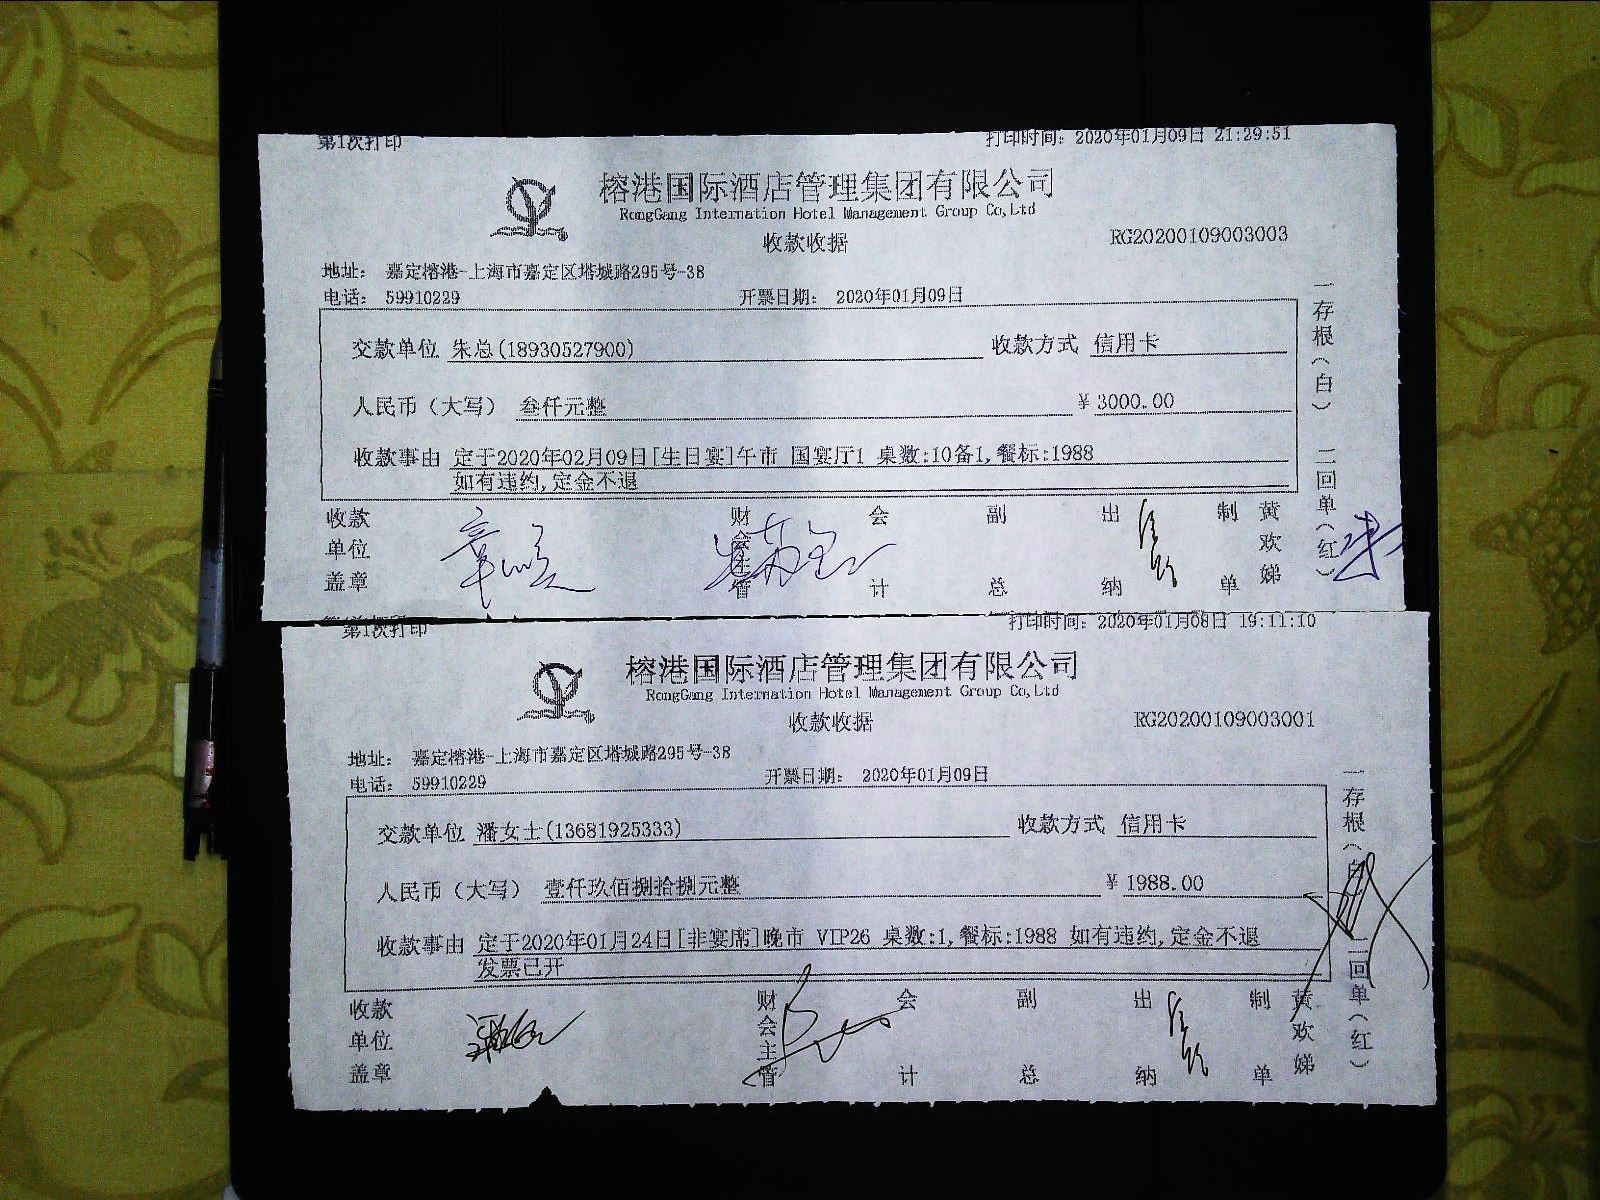 第1次打印 打印时间: 2020年01月09日 21:29:51
榕港国际酒店管理集团有限公司
RongGang Internation Hotel Management Group Co,Ltd
收款收据 RG20200109003003
地址: 嘉定榕港-上海市嘉定区塔城路295号-38
电话: 59910229 开票日期: 2020年01月09日
交款单位 朱总(18930527900) 收款方式 信用卡
人民币（大写） 叁仟元整 ¥ 3000.00
收款事由 定于2020年02月09日[生日宴]午市 国宴厅1 桌数:10备1,餐标:1988
如有违约,定金不退
收款单位盖章 财会主管 会计 副总 出纳 制单 黄欢娣
一存根(白) 二回单(红)
第1次打印 打印时间: 2020年01月08日 19:11:10
榕港国际酒店管理集团有限公司
RongGang Internation Hotel Management Group Co,Ltd
收款收据 RG20200109003001
地址: 嘉定榕港-上海市嘉定区塔城路295号-38
电话: 59910229 开票日期: 2020年01月09日
交款单位 潘女士(13681925333) 收款方式 信用卡
人民币（大写） 壹仟玖佰捌拾捌元整 ¥ 1988.00
收款事由 定于2020年01月24日[非宴席]晚市 VIP26 桌数:1,餐标:1988 如有违约,定金不退
发票已开
收款单位盖章 财会主管 会计 副总 出纳 制单 黄欢娣
一存根(白) 二回单(红)